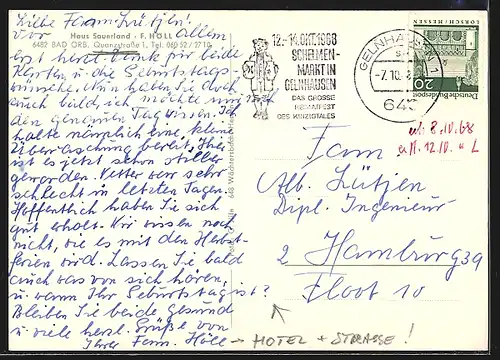 Liebe Fam. Lütjen!
Haus Sauerland · F. HÖLL
6482 BAD ORB, Quanzstraße 1, Tel. 060 52 / 2710
Vor allem
erst herzl. Dank für beide
Karten u. die Geburtstags-
wünsche. Nun haben Sie doch
auch bald ich möchte nur
den genauen Tag wissen. Ich
halte nämlich eine kleine
Überraschung bereit. Hier
ist es jetzt schon stiller
geworden. Wetter war sehr
schlecht in letzten Tagen.
Hoffentlich haben Sie sich
gut erholt. Wir wissen noch
nicht, wie es mit den Herbst-
ferien wird. Lassen Sie bald
auch was von sich hören,
u. wann Ihr Geburtstag ist?
Bleiben Sie beide gesund
u. viele herzl. Grüße von
Ihrer Fam. Höll
12.-14.OKT.1968
SCHELMEN-
MARKT IN
GELNHAUSEN
DAS GROSSE
HEIMATFEST
DES KINZIGTALES
GELNHAUSEN 1
-7.10.
646
LORSCH / HESSEN
Deutsche Bundespost
20
erh. 8.10.68
a/b. 12.10. " L
Fam.
Alb. Lütjen
Dipl. Ingenieur
2 Hamburg 39
Floot 10
HOTEL + STRASSE!